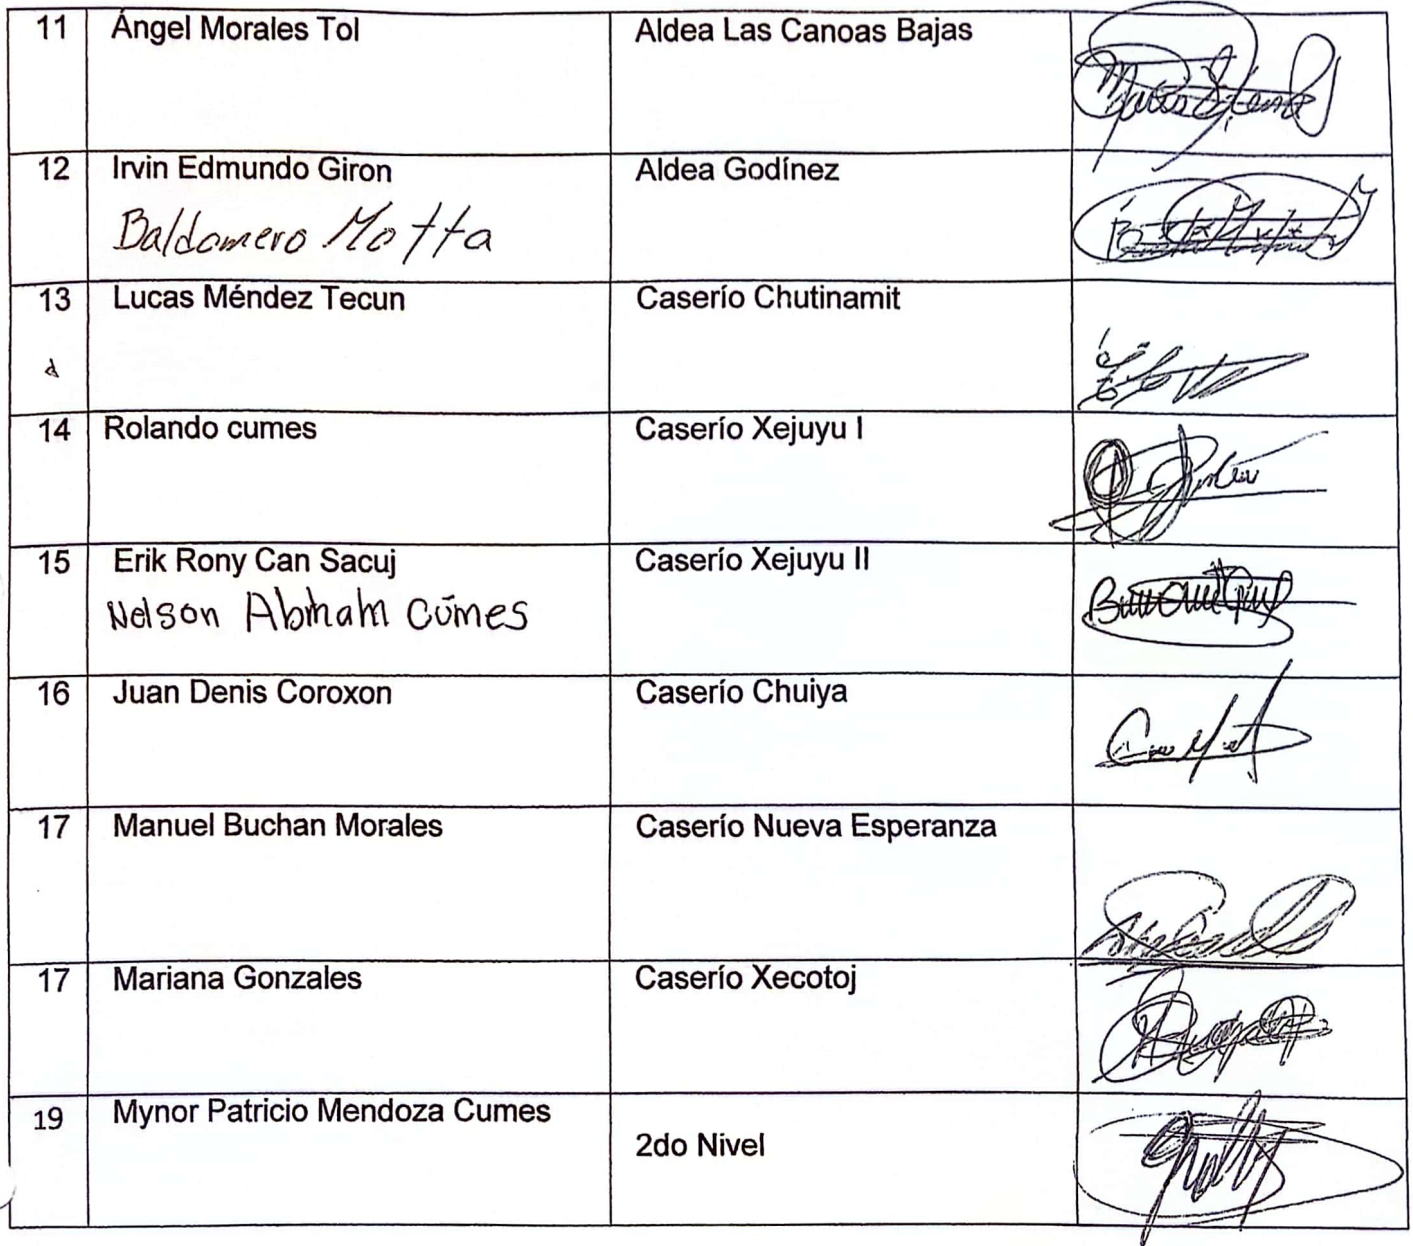 11 Ángel Morales Tol Aldea Las Canoas Bajas
12 Irvin Edmundo Giron Aldea Godínez
Baldomero Motta
13 Lucas Méndez Tecun Caserío Chutinamit
14 Rolando cumes Caserío Xejuyu I
15 Erik Rony Can Sacuj Caserío Xejuyu II
Nelson Abraham Cúmes
16 Juan Denis Coroxon Caserío Chuiya
17 Manuel Buchan Morales Caserío Nueva Esperanza
17 Mariana Gonzales Caserío Xecotoj
19 Mynor Patricio Mendoza Cumes
2do Nivel